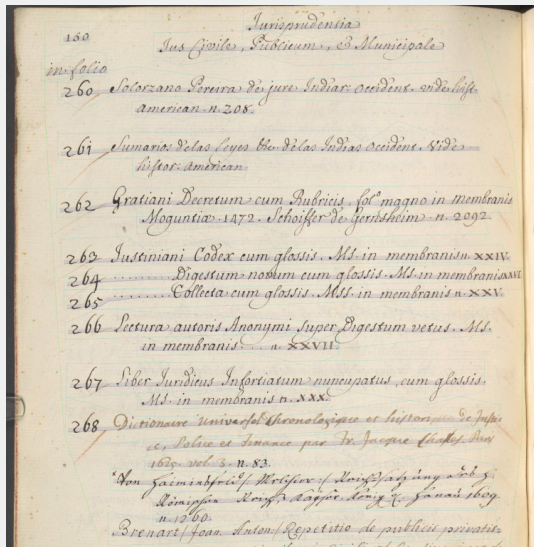 Jurisprudentia
150
Ius Civile, Publicum, & Municipale
in folio
260 Solorzano Pereira de jure Indiar. Occident. vide hist.
american. n. 208.
261 Sumarios delas Leyes &c. delas Indias Occident. Vide
histor. american
262 Gratiani Decretum cum Rubricis, fol.º magno in membranis
Moguntiæ. 1472. Schoiffer de Gernsheim. n. 2092
263 Iustiniani Codex cum glossis. Ms. in membranis n. XXIV.
264 ......... Digestum novum cum glossis. Ms. in membranis
265 ......... Collecta cum glossis. Mss. in membranis n. XXV
266 Lectura autoris Anonymi super Digestum vetus. Ms.
in membranis... n. XXVII.
267 Liber Juridicus Infortiatum nuncupatus, cum glossis.
Ms. in membranis n. XXX.
268 Dictionaire universel Chronologique et historique de Justi-
ce, Police et Finance par Fr. Jacque
vol. 3. n. 83.
Von
König 1609
n. 1260
Brenart / Joan. Anton. / Repetitio de publicis privatis-